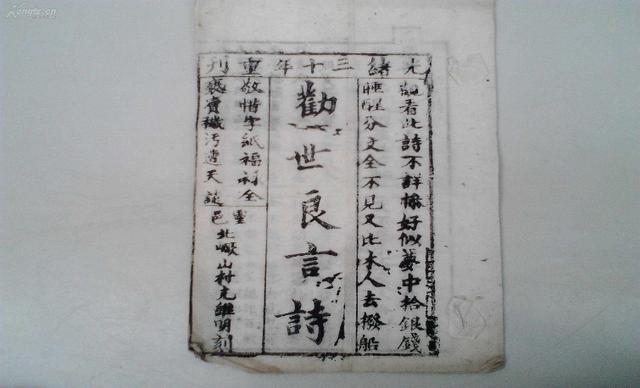 光緒三十年重刊
觀看此詩不詳條好似夢中拾銀錢
睡醒分文全不見又比木人去撥船
勸世良言詩
敬惜字紙福祿全
褻賣穢污遭天譴
靈邑
北㟂山村尤維明刻